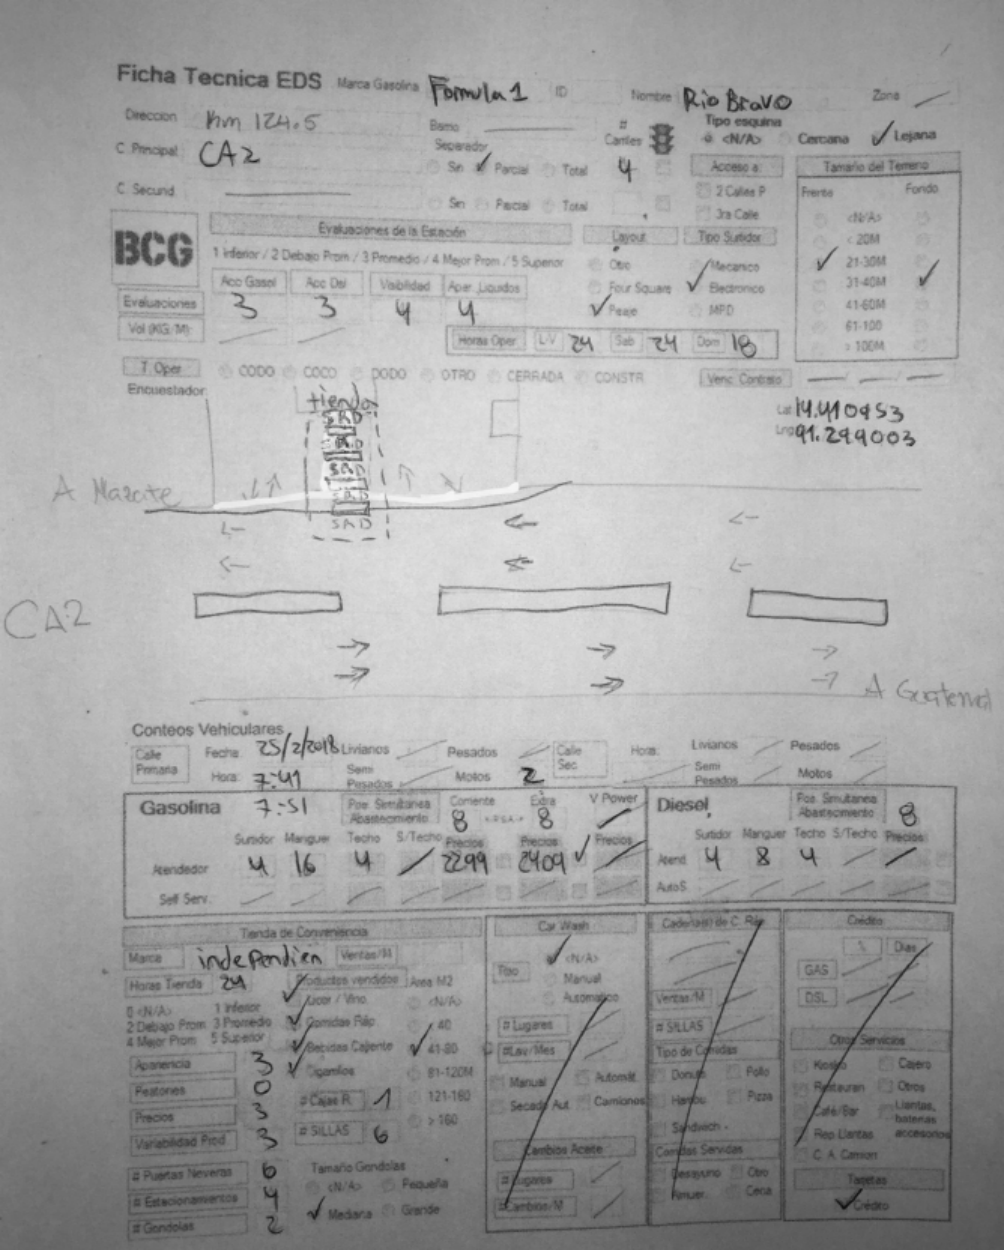 Ficha Tecnica EDS Marca Gasolina Formula 1 ID Nombre Rio Bravo Zona
Direccion Km 124.5 Barrio # Carriles Tipo esquina <N/A> Cercana Lejana
C Principal CA2 Separador Sin Parcial Total 4 Acceso a Tamaño del Terreno
C. Secund. Sin Parcial Total 2 Calles P 3ra Calle Frente Fondo
BCG Evaluaciones de la Estación Layout Tipo Surtidor <N/A>
1 Inferior / 2 Debajo Prom / 3 Promedio / 4 Mejor Prom / 5 Superior Otro Mecanico < 20M
Acc Gasol Acc Dsl Visibilidad Apar. Liquidos Four Square Electronico 21-30M
Evaluaciones 3 3 4 4 Peaje MPD 31-40M
41-60M
Vol (KG/M) Horas Oper L-V 24 Sab 24 Dom 18 61-100
> 100M
T. Oper CODO COCO DODO OTRO CERRADA CONSTR Venc Contrato
Encuestador
tienda
Lat 14.410453
Lng 91.299003
SRD
SRD
SRD
SRD
SRD
A Mazate
CA2
A Guatemal
Conteos Vehiculares
Calle Primaria Fecha 25/2/2018 Livianos Pesados Calle Sec Hora: Livianos Pesados
Hora: 7:41 Semi Pesados Motos 2 Semi Pesados Motos
Gasolina 7:51 Pos. Simultanea Abastecimiento Corriente 8 Extra 8 V Power Diesel Pos. Simultanea Abastecimiento 8
Surtidor Manguer Techo S/Techo Precios Precios Precios Surtidor Manguer Techo S/Techo Precios
Atendedor 4 16 4 2299 2409 Atend 4 8 4
Self Serv. AutoS
Tienda de Conveniencia Car Wash Cadena(s) de C. Ráp Crédito
Marca independien Ventas/M <N/A> % Dias
Horas Tienda 24 Productos vendidos Area M2 Tipo Manual GAS
0 <N/A> 1 Inferior Licor / Vino <N/A> Automatico Ventas/M DSL
2 Debajo Prom 3 Promedio Comidas Ráp. 40 # Lugares # SILLAS
4 Mejor Prom 5 Superior Bebidas Caliente 41-80 #Lav/Mes Tipo de Comidas Otros Servicios
Apariencia 3 Cigarrillos 81-120M Manual Automát Donuts Pollo Kiosko Cajero
Peatones 0 # Cajas R. 1 121-160 Secado Aut. Camiones Hambu Pizza Restauran Otros
Precios 3 > 160 Sandwich Café/Bar Llantas, baterias accesorios
Variabilidad Prod 3 # SILLAS 6 Cambios Aceite Comidas Servidas Rep Llantas
# Puertas Neveras 6 Tamaño Gondolas # Lugares Desayuno Otro C. A. Camion
# Estacionamientos 4 <N/A> Pequeña #Cambios/M Almuer. Cena Tarjetas
# Gondolas 2 Mediana Grande Crédito